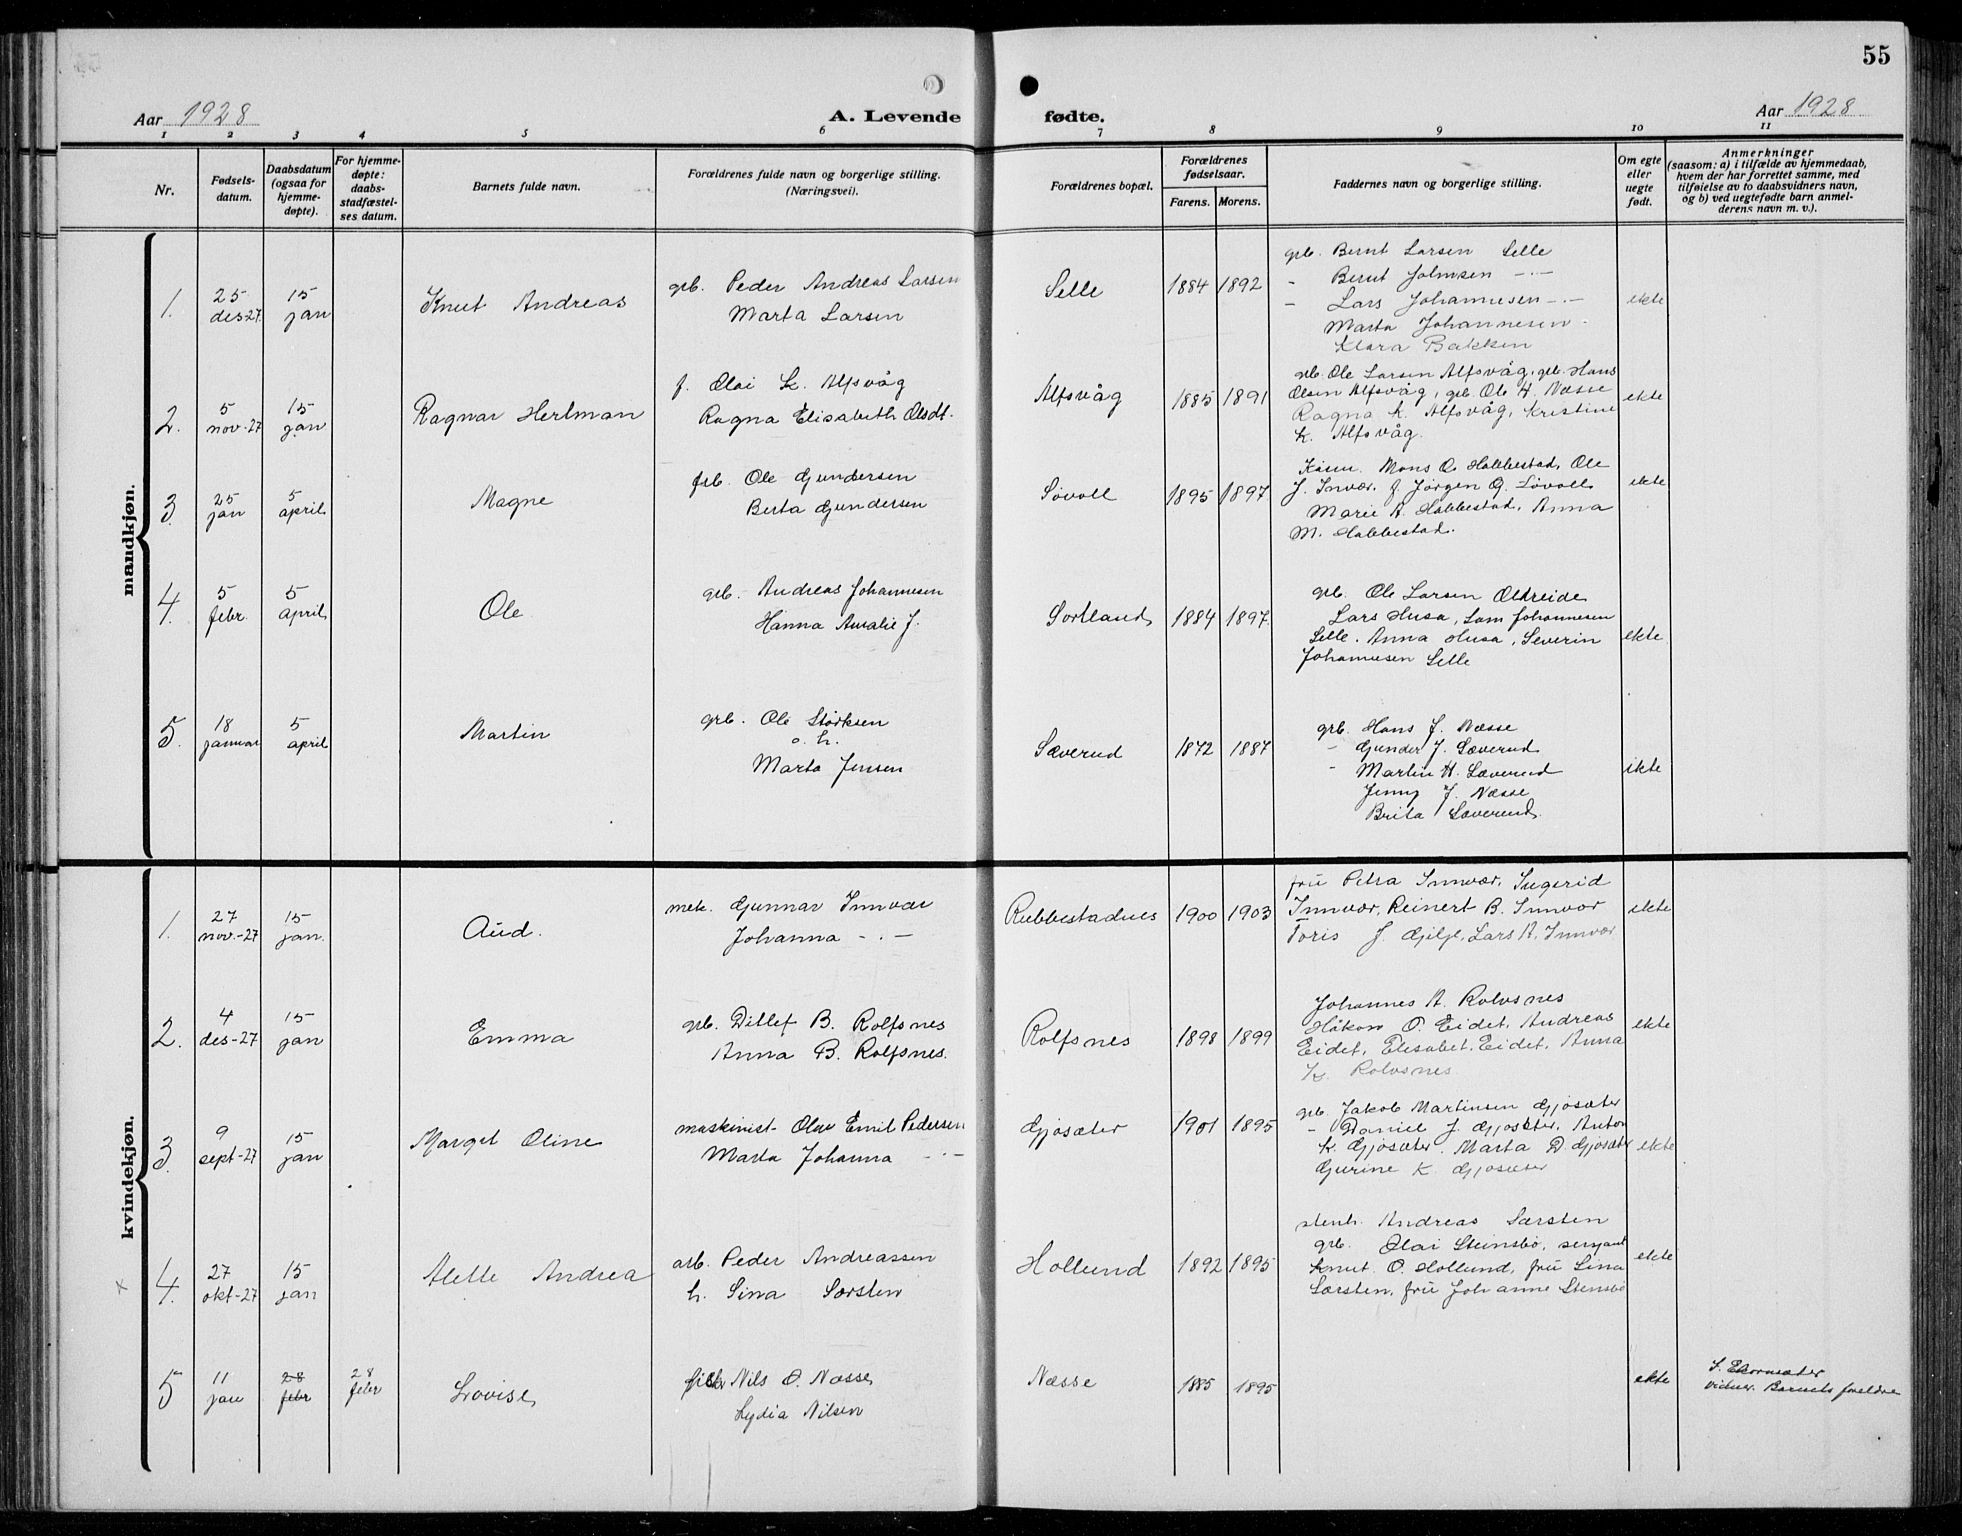 55
Aar 1928
A. Levende
fødte.
Aar 1928
1 2 3 4 5 6 7 8 9 10 11
Nr.
Fødsels-
datum.
Daabsdatum
(ogsaa for
hjemme-
døpte).
For hjemme-
døpte:
daabs-
stadfæstel-
ses datum.
Barnets fulde navn.
Forældrenes fulde navn og borgerlige stilling.
(Næringsvei).
Forældrenes bopæl.
Forældrenes
fødselsaar.
Farens. Morens.
Faddernes navn og borgerlige stilling.
Om egte
eller
uegte
født.
Anmerkninger
(saasom: a) i tilfælde av hjemmedaab,
hvem der har forrettet samme, med
tilføielse av to daabsvidners navn,
og b) ved uegtefødte barn anmel-
derens navn m. v.).
mandkjøn.
1.
25
des-27.
15
jan
Knut Andreas
grb. Peder Andreas Larsen
Marta Larsen
Selle
1884 1892
grb. Bernt Larsen Selle
- Bernt Johnsen -"-
- Lars Johannesen -"-
Marta Johannesen -
Klara Bakken
ekte
2.
5
nov-27
15
jan
Ragnar Herlman
f. Olai K. Alfsvåg
Ragna Elisabeth Olsdt.
Alfsvåg
1885 1891
grb. Ole Larsen Alfsvåg, grb. Hans
Olsen Alfsvåg, grb. Ole H. Næsse
Ragna K. Alfsvåg, Kristine
K. Alfsvåg.
ekte
3.
25
jan
5
april
Magne
frb. Ole Gundersen
Berta Gundersen
Løvoll
1895 1897
Mons O. Habbestad, Ole
J. Innvær, f Jørgen G. Løvoll
Marie A. Habbestad, Anna
M. Habbestad.
ekte
4.
5
febr.
5
april
Ole
grb. Andreas Johannesen
Hanna Amalie J.
Sortland
1884 1897.
grb. Ole Larsen Økreide
Lars Husa, Lam Johannesen
Selle. Anna Husa, Severin
Johannesen Selle
ekte
5.
18
januar
5
april
Martin
grb. Ole Størksen
o. h.
Marta Jensen
Sæverud
1872 1887
grb. Hans J. Næsse
- Gunder J. Sæverud
- Martin H. Sæverud
Jenny J. Næsse
Brita Sæverud.
ekte
kvindekjøn.
1.
27
nov.-27
15
jan.
Aud.
mek. Gunnar Innvær
Johanna -"-
Rubbestadnes
1900 1903
fru Petra Innvær, Ingerid
Innvær, Reinert B. Innvær
Toris J. Gilje, Lars A. Innvær
ekte
2.
4
des-27
15
jan
Emma
grb. Ditlef B. Rolfsnes
Anna B. Rolfsnes.
Rolfsnes
1898 1899
Johannes A. Rolvsnes
Håkon O. Eidet, Andreas
Eidet, Elisabet Eidet, Anna
K. Rolvsnes
ekte
3.
9
sept-27
15
jan
Marget Oline
maskinist Olav Emil Pedersen
Marta Johanna -"-
Gjøsæter
1901 1895
grb. Jakob Martinsen Gjøsæter
- Daniel J. Gjøsæter, Anton
K. Gjøsæter, Marta D. Gjøsæter
Gurine K. Gjøsæter
ekte
x
4.
27
okt-27
15
jan
Alette Andrea
arb. Peder Andreassen
h. Sina Særsten
Hollund
1892 1895
stenh. Andreas Særsten
grb. Olai Steinsbø, sersjant
Knut O. Hollund, fru Sina
Særsten, fru Johanne Stensbø
ekte
5
11
jan
28
febr
28
febr
Lovise
Nils O. Næsse
Lydia Nilsen
Næsse
1885 1895
ekte
vidner. Barnets foreldre